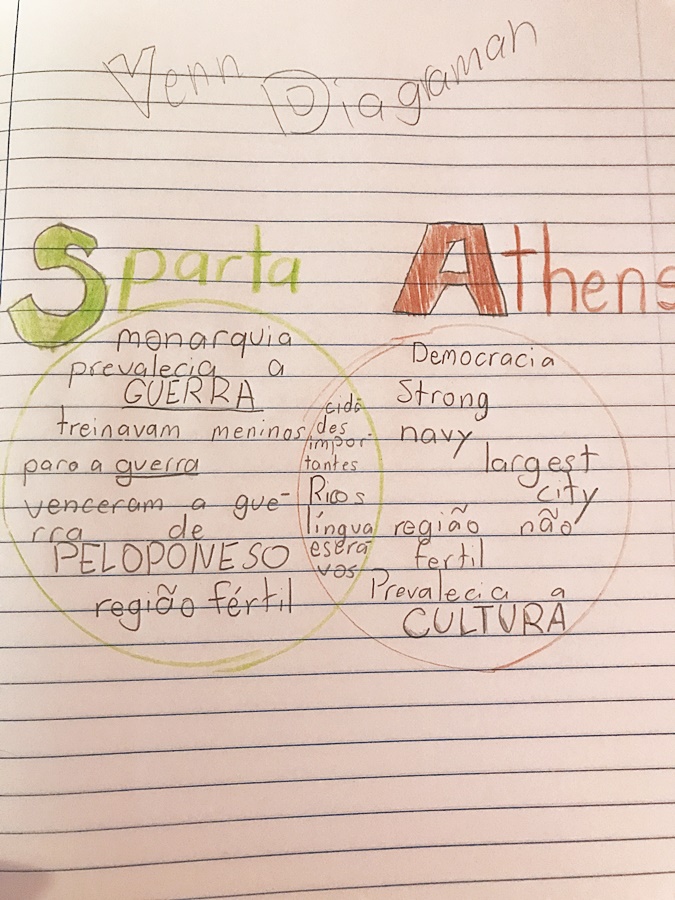 Venn Diagraman
Sparta
Athens
monarquia
prevalecia a
GUERRA
treinavam meninos
para a guerra
venceram a gue-
rra de
PELOPONESO
região fértil
cida
des
impor-
tantes
Ricos
língua
escra
vos
Democracia
Strong
navy
largest
city
região não
fertil
Prevalecia a
CULTURA